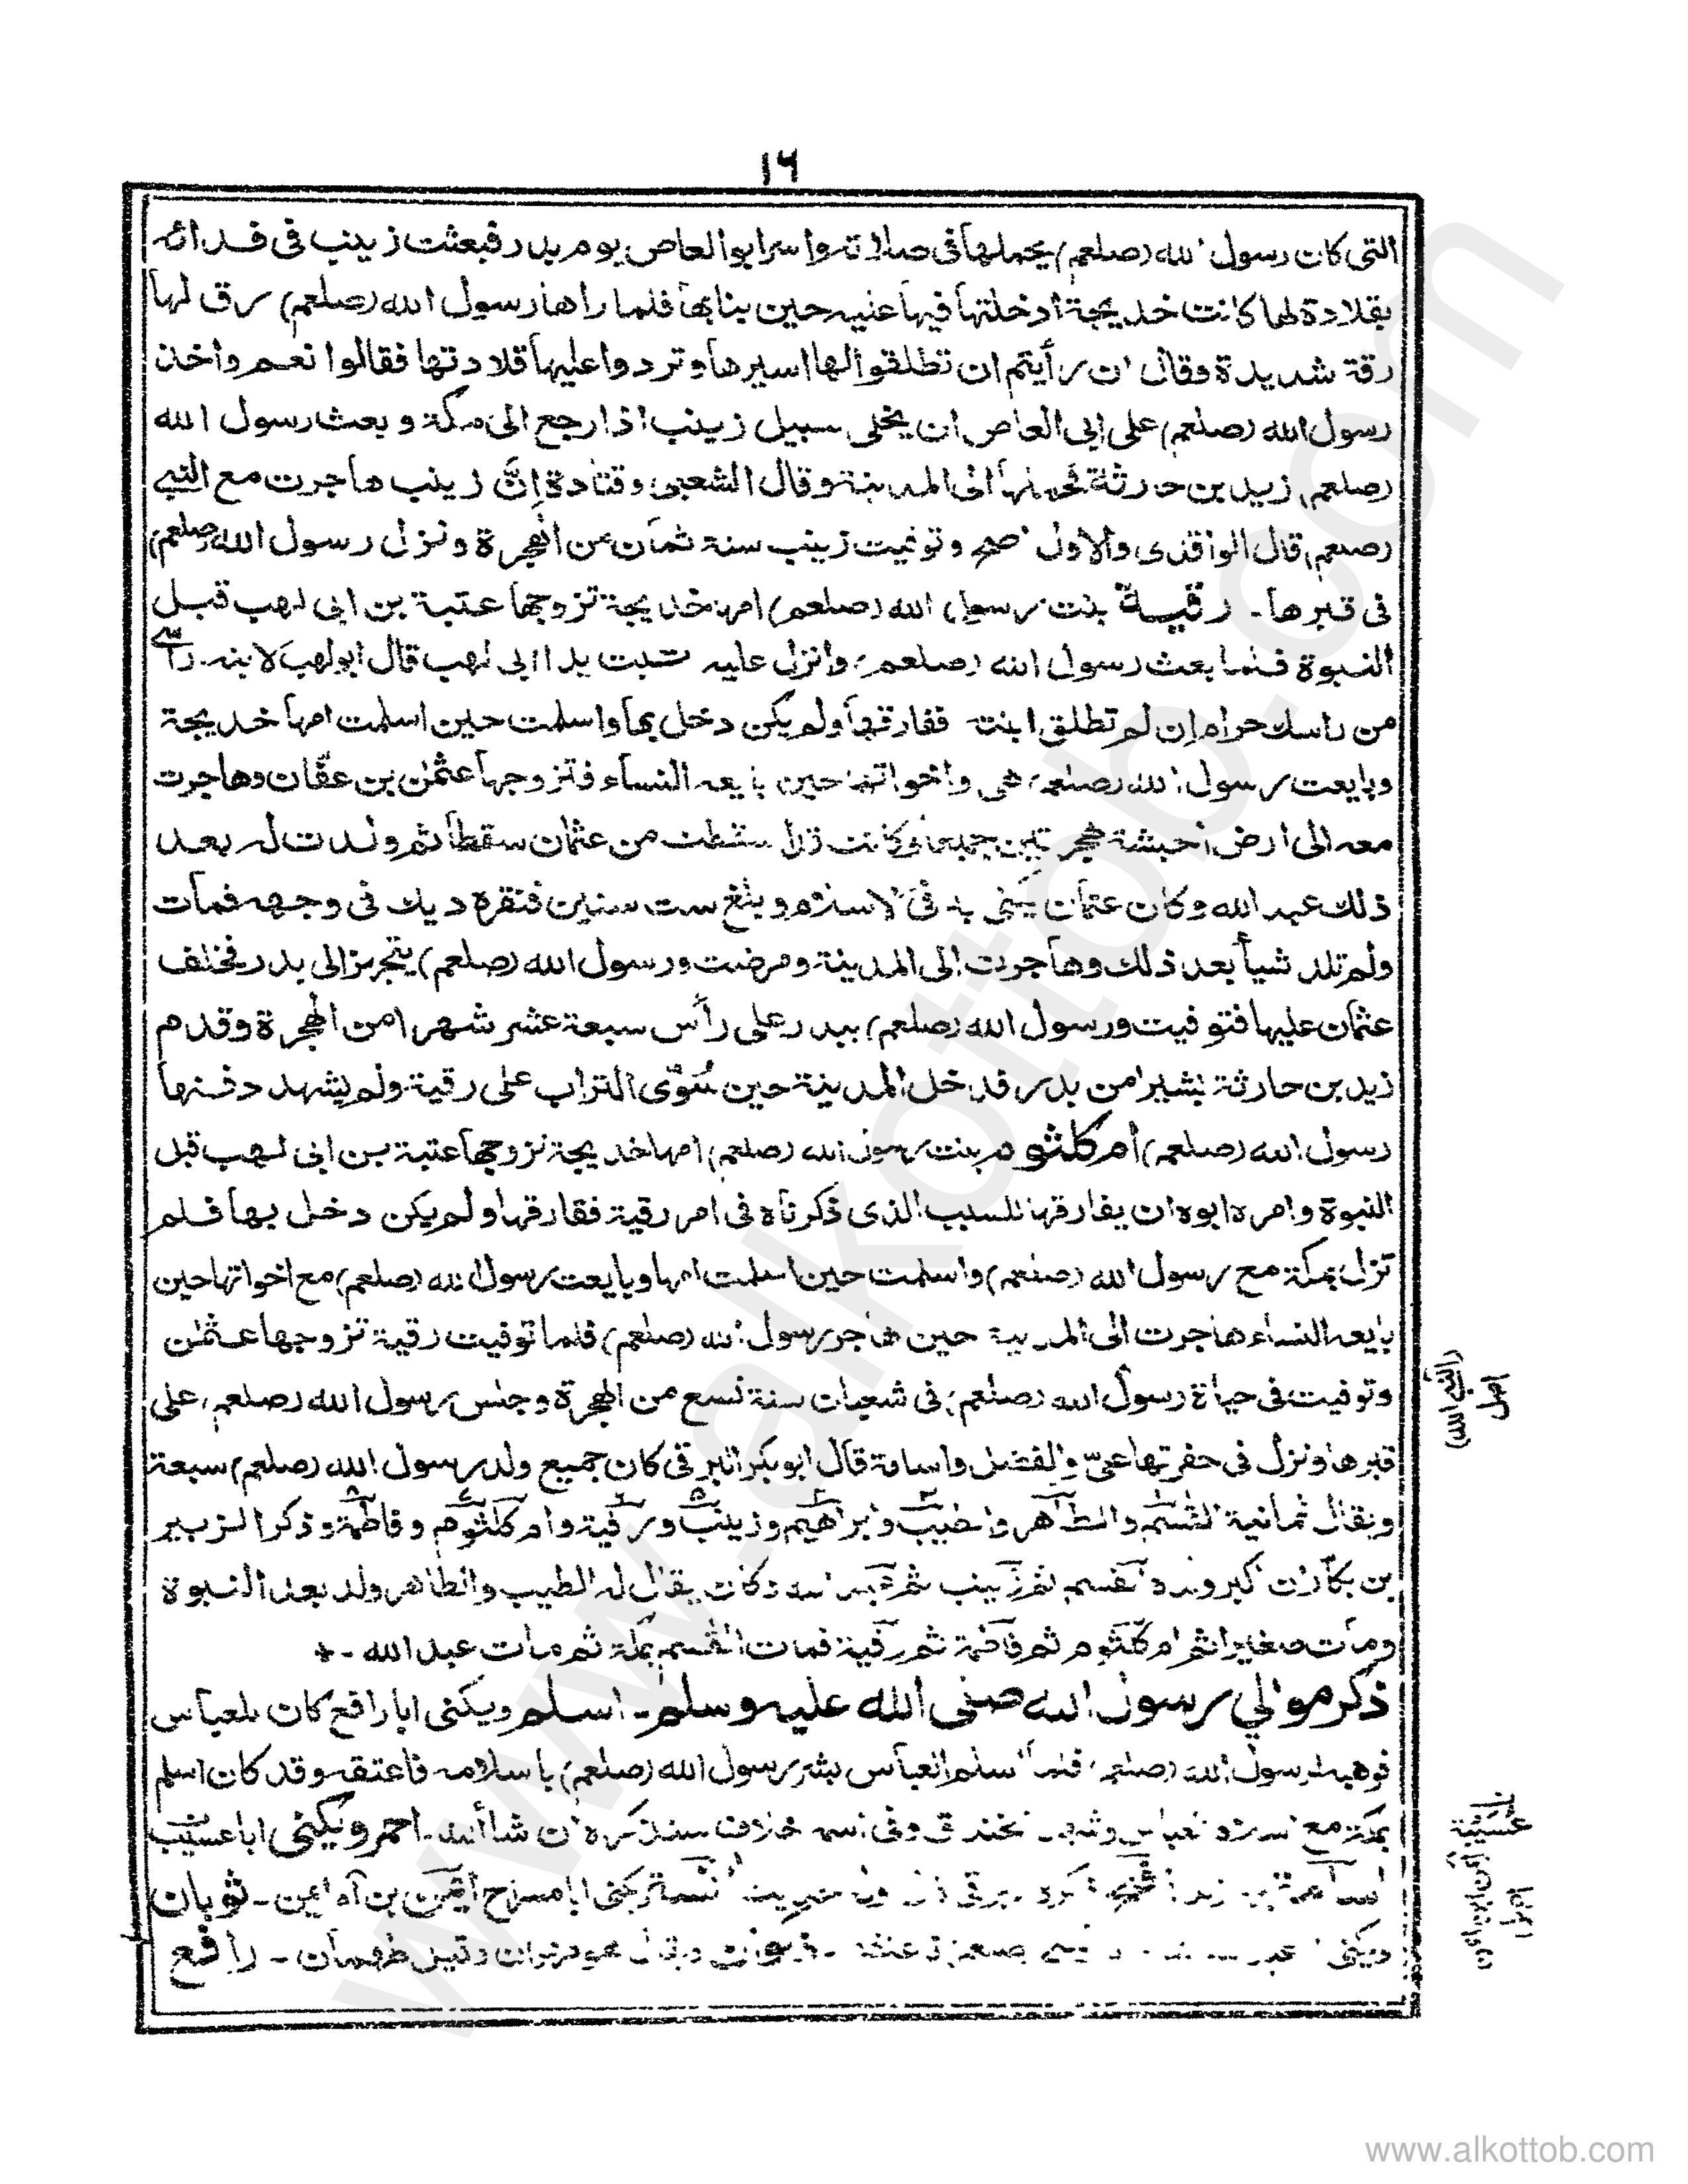 ١٦
التى كان رسول الله (صلعم) يحملها فى صلاته واسر ابو العاص يوم بدر فبعثت زينب فى فدائه
بقلادة لها كانت خديجة أدخلتها فيها عليه حين بنا بها فلما راها رسول الله (صلعم) رق لها
رقة شديدة وقال ان رأيتم ان تطلقوا لها اسيرها وتردوا عليها قلادتها فقالوا نعم واخذ
رسول الله (صلعم) على ابى العاص ان يخلى سبيل زينب اذا رجع الى مكة و بعث رسول الله
(صلعم) زيد بن حارثة فحملها الى المدينة وقال الشعبى وقتادة إنّ زينب هاجرت مع النبے
(صلعم) قال الواقدى والاول اصح وتوفيت زينب سنة ثمان من الهجرة ونزل رسول الله (صلعم)
فى قبرها ـ رقية بنت رسول الله (صلعم) امها خديجة تزوجها عتبة بن ابى لهب قبل
النبوة فلما بعث رسول الله (صلعم) وانزل عليه تبت يدا ابى لهب قال ابو لهب لابنه راسے
من راسك حرام إن لم تطلق ابنته ففارقها ولم يكن دخل بها واسلمت حين اسلمت امها خديجة
وبايعت رسول الله (صلعم) هى واخواتها حين بايعه النساء فتزوجها عثمٰن بن عفّان وهاجرت
معه الى ارض الحبشة الهجرتين جميعا وكانت قد اسقطت من عثمان سقطا ثم ولدت له بعد
ذلك عبد الله وكان عثمان يكنى به فى الاسلام و بلغ ست سنين فنقره ديك فى وجهه فمات
ولم تلد شيأ بعد ذلك وهاجرت الى المدينة ومرضت ورسول الله (صلعم) يتجهز الى بدر فخلف
عثمان عليها فتوفيت ورسول الله (صلعم) ببدر على رأس سبعة عشر شهرا من الهجرة وقدم
زيد بن حارثة بشيرا من بدر فدخل المدينة حين سُوّى التراب على رقية ولم يشهد دفنها
رسول الله (صلعم) أم كلثوم بنت رسول الله (صلعم) امها خديجة تزوجها عتبة بن ابى لهب قبل
النبوة وامره ابوه ان يفارقها للسبب الذى ذكرناه فى امر رقية ففارقها ولم يكن دخل بها فلم
تزل بمكة مع رسول الله (صلعم) واسلمت حين اسلمت امها وبايعت رسول الله (صلعم) مع اخواتها حين
بايعه النساء هاجرت الى المدينة حين هاجر رسول الله (صلعم) فلما توفيت رقية تزوجها عثمٰن
وتوفيت فى حياة رسول الله (صلعم) فى شعبان سنة تسع من الهجرة وجلس رسول الله (صلعم) على
قبرها ونزل فى حفرتها علىّ والفضل واسامة قال ابو بكر البرقى كان جميع ولد رسول الله (صلعم) سبعة
ويقال ثمانية القٰسم والطاهر والطيب وابراهيم وزينب ورقية وام كلثوم وفاطمة وذكر الزبير
بن بكّار ان اكبر ولده القٰسم ثم زينب ثم عبد الله وكان يقال له الطيب والطاهر ولد بعد النبوة
ومات صغيرا ثم ام كلثوم ثم فاطمة ثم رقية فمات القٰسم بمكة ثم مات عبد الله ـ *
ذكر موالي رسول الله صلى الله عليه وسلم ـ اسلم ويكنى ابا رافع كان للعباس
فوهبه لرسول الله (صلعم) فلما اسلم العباس بشر رسول الله (صلعم) باسلامه فاعتقه وقد كان اسلم
بمكة مع العباس وشهد الخندق وفى اسمه خلاف سنذكره ان شاء الله ـ احمر ويكنى ابا عسيب
اسامة بن زيد انسة ويكنى ابا مسرح أيمن بن أم ايمن ـ ثوبان
ويكنى ذكوان ويقال هو مهران وقيل طهمان ـ رافع
اصل
عسيبة
www.alkottob.com
www.alkottob.com